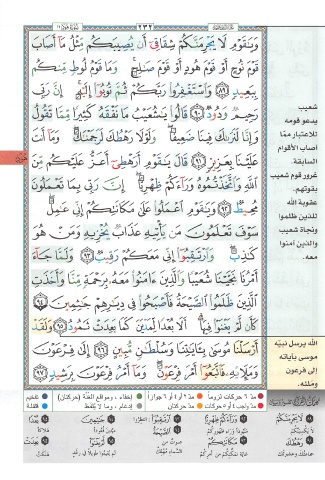 وَيَٰقَوْمِ لَا يَجْرِمَنَّكُمْ شِقَاقِىٓ أَن يُصِيبَكُم مِّثْلُ مَآ أَصَابَ
قَوْمَ نُوحٍ أَوْ قَوْمَ هُودٍ أَوْ قَوْمَ صَٰلِحٍ ۚ وَمَا قَوْمُ لُوطٍ مِّنكُم
بِبَعِيدٍ ﴿٨٩﴾ وَٱسْتَغْفِرُوا۟ رَبَّكُمْ ثُمَّ تُوبُوٓا۟ إِلَيْهِ ۚ إِنَّ رَبِّى
رَحِيمٌ وَدُودٌ ﴿٩٠﴾ قَالُوا۟ يَٰشُعَيْبُ مَا نَفْقَهُ كَثِيرًا مِّمَّا تَقُولُ
وَإِنَّا لَنَرَىٰكَ فِينَا ضَعِيفًا ۖ وَلَوْلَا رَهْطُكَ لَرَجَمْنَٰكَ ۖ وَمَآ أَنتَ
عَلَيْنَا بِعَزِيزٍ ﴿٩١﴾ قَالَ يَٰقَوْمِ أَرَهْطِىٓ أَعَزُّ عَلَيْكُم مِّنَ
ٱللَّهِ وَٱتَّخَذْتُمُوهُ وَرَآءَكُمْ ظِهْرِيًّا ۖ إِنَّ رَبِّى بِمَا تَعْمَلُونَ
مُحِيطٌ ﴿٩٢﴾ وَيَٰقَوْمِ ٱعْمَلُوا۟ عَلَىٰ مَكَانَتِكُمْ إِنِّى عَٰمِلٌ ۖ
سَوْفَ تَعْلَمُونَ مَن يَأْتِيهِ عَذَابٌ يُخْزِيهِ وَمَنْ هُوَ
كَٰذِبٌ ۖ وَٱرْتَقِبُوٓا۟ إِنِّى مَعَكُمْ رَقِيبٌ ﴿٩٣﴾ وَلَمَّا جَآءَ
أَمْرُنَا نَجَّيْنَا شُعَيْبًا وَٱلَّذِينَ ءَامَنُوا۟ مَعَهُۥ بِرَحْمَةٍ مِّنَّا وَأَخَذَتِ
ٱلَّذِينَ ظَلَمُوا۟ ٱلصَّيْحَةُ فَأَصْبَحُوا۟ فِى دِيَٰرِهِمْ جَٰثِمِينَ ﴿٩٤﴾
كَأَن لَّمْ يَغْنَوْا۟ فِيهَآ ۗ أَلَا بُعْدًا لِّمَدْيَنَ كَمَا بَعِدَتْ ثَمُودُ ﴿٩٥﴾ وَلَقَدْ
أَرْسَلْنَا مُوسَىٰ بِـَٔايَٰتِنَا وَسُلْطَٰنٍ مُّبِينٍ ﴿٩٦﴾ إِلَىٰ فِرْعَوْنَ
وَمَلَإِي۟هِۦ فَٱتَّبَعُوٓا۟ أَمْرَ فِرْعَوْنَ ۖ وَمَآ أَمْرُ فِرْعَوْنَ بِرَشِيدٍ ﴿٩٧﴾
شعيب
يدعو قومه
للاعتبار ممّا
أصاب الأقوام
السابقة.
غرور قوم شعيب
بقوتهم.
عقوبة الله
للذين ظلموا
ونجاة شعيب
والذين آمنوا
معه.
الله يرسل نبيّه
موسى بآياته
إلى فرعون
وملئه.